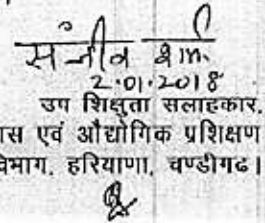 संजीव शर्मा
2.01.2018
उप शिक्षुता सलाहकार,
ास एवं औद्योगिक प्रशिक्षण
विभाग, हरियाणा, चण्डीगढ।